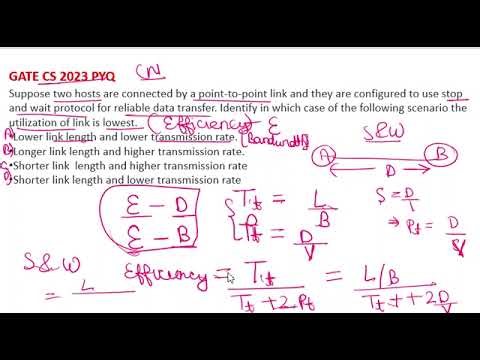 GATE CS 2023 PYQ CN
Suppose two hosts are connected by a point-to-point link and they are configured to use stop
and wait protocol for reliable data transfer. Identify in which case of the following scenario the
utilization of link is lowest. (Efficiency) ε
A) Lower link length and lower transmission rate. (Bandwidth)
B) Longer link length and higher transmission rate.
C) •Shorter link length and higher transmission rate
D) Shorter link length and lower transmission rate
S&W
A B
D
ε – D
ε – B
Tt = L/B
Pt = D/V
S = D/T
⇒ Pt = D/
S&W
= L
Efficiency = Tt / Tt + 2Pt = L/B / Tt + 2D/V